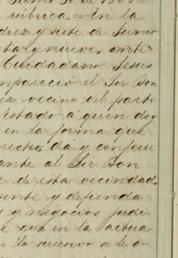 rúbrica. = En la
diez y siete de Junio
ta y nueve, ante
Ciudadano Jesus
mpareció el Sor Don
ez vecino del parti
Estado á quien doy
en la forma que
recho, da y confie
ante al Sr Don
de esta vecindad
sente y defienda
y negocios judi
que en la actua
lo nuevo se le o